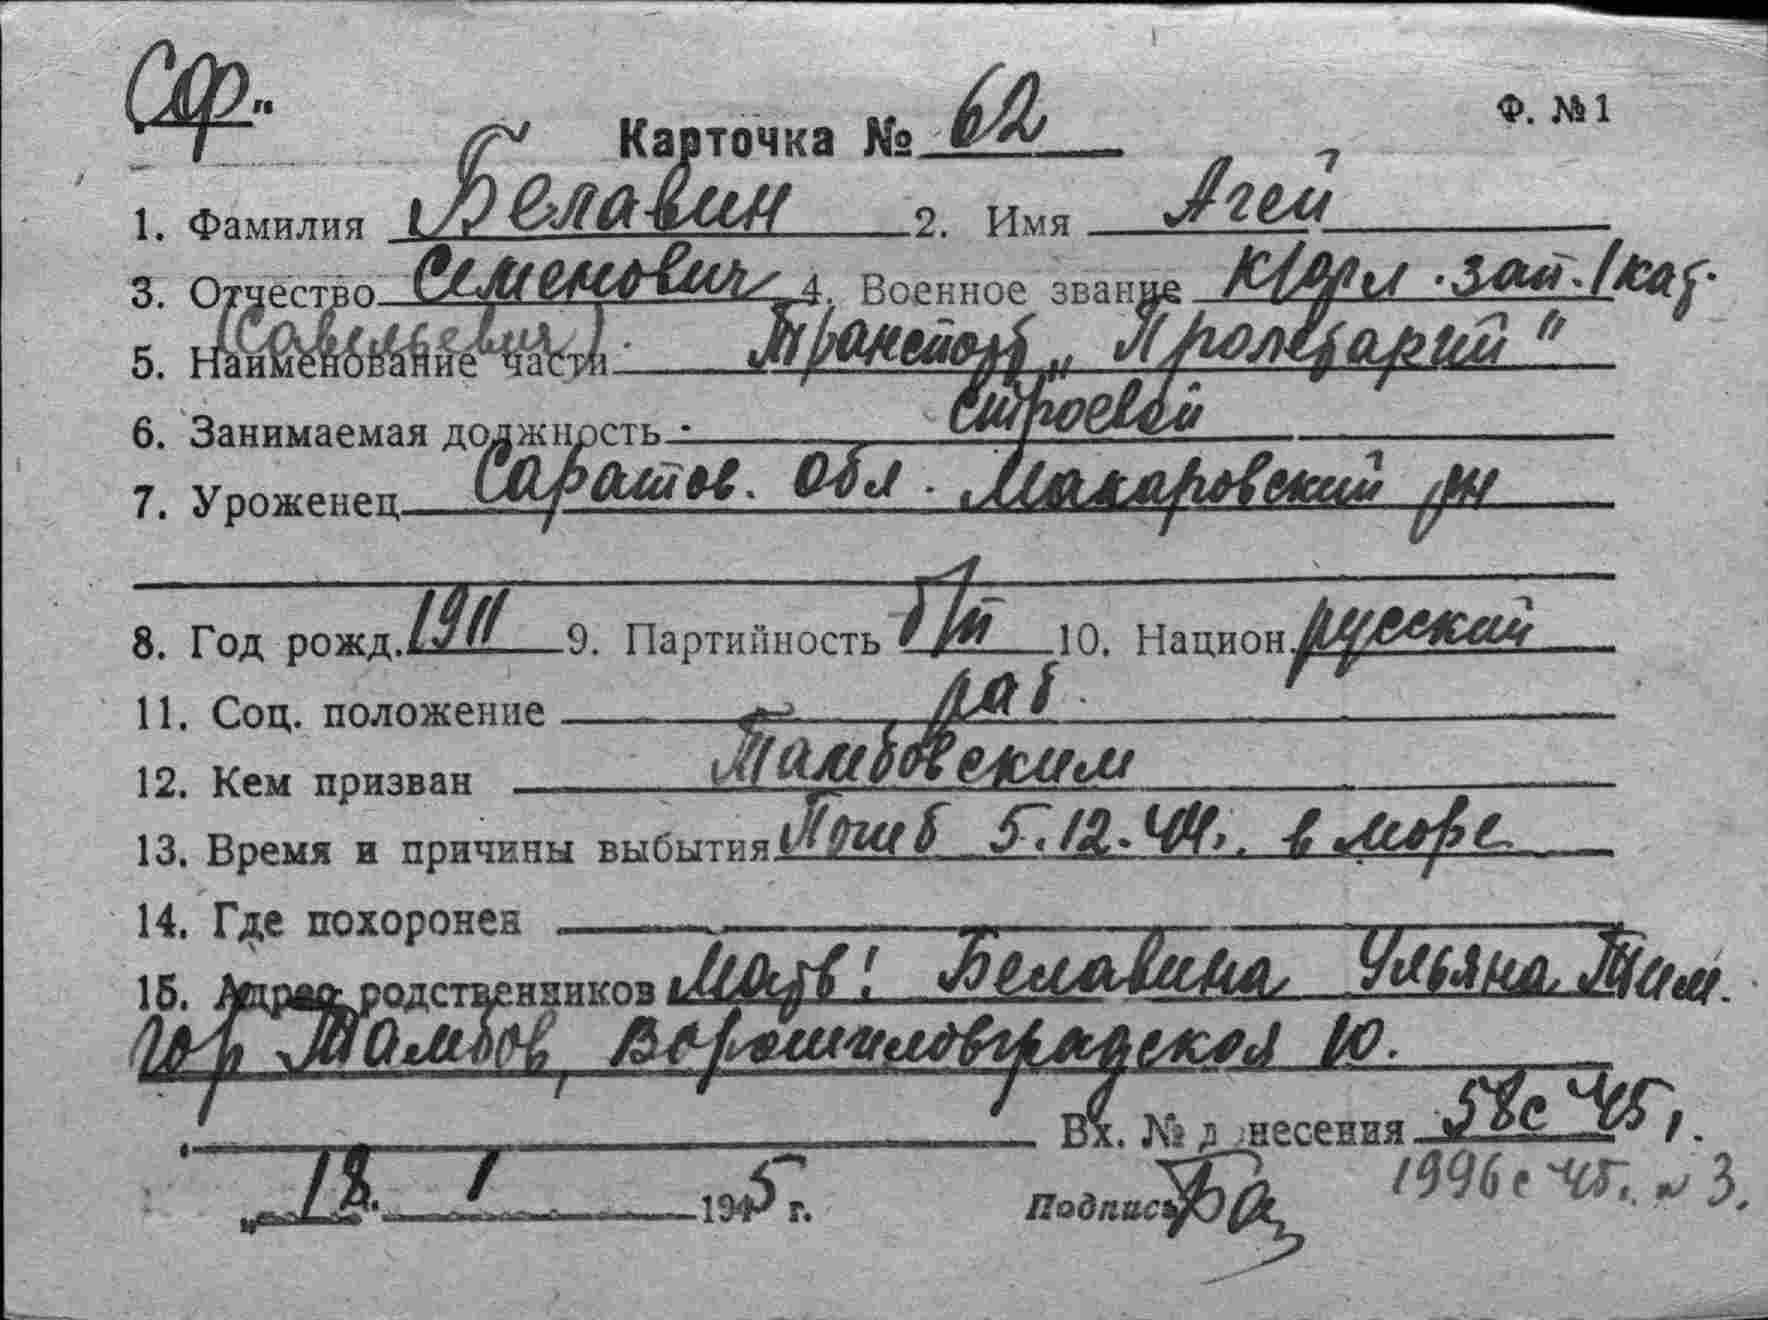 Сф."
Ф. №1
Карточка № 62
1. Фамилия Белавин 2. Имя Агей
3. Отчество Семенович 4. Военное звание к/фл. зап. 1 кат.
(Савельевич)
5. Наименование части Транспорт „Пролетарий"
6. Занимаемая должность строевой
7. Уроженец Саратов. обл. Макаровский рн
8. Год рожд. 1911 9. Партийность б/п 10. Национ. русский
11. Соц. положение раб.
12. Кем призван Тамбовским
13. Время и причины выбытия Погиб 5.12.41г. в море
14. Где похоронен
15. Адрес родственников Мать: Белавина Ульяна Тим.
гор Тамбов, Ворошиловградская 10.
Вх. № донесения 58с 45г.
1996с 45г. № 3.
„ 18. 1 1945 г. Подпись